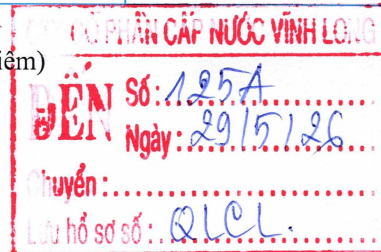 CỔ PHẦN CẤP NƯỚC VĨNH LONG
iệm)
ĐẾN
Số: 125A
Ngày: 29/5/26
Chuyển:
Lưu hồ sơ số: QLCL.